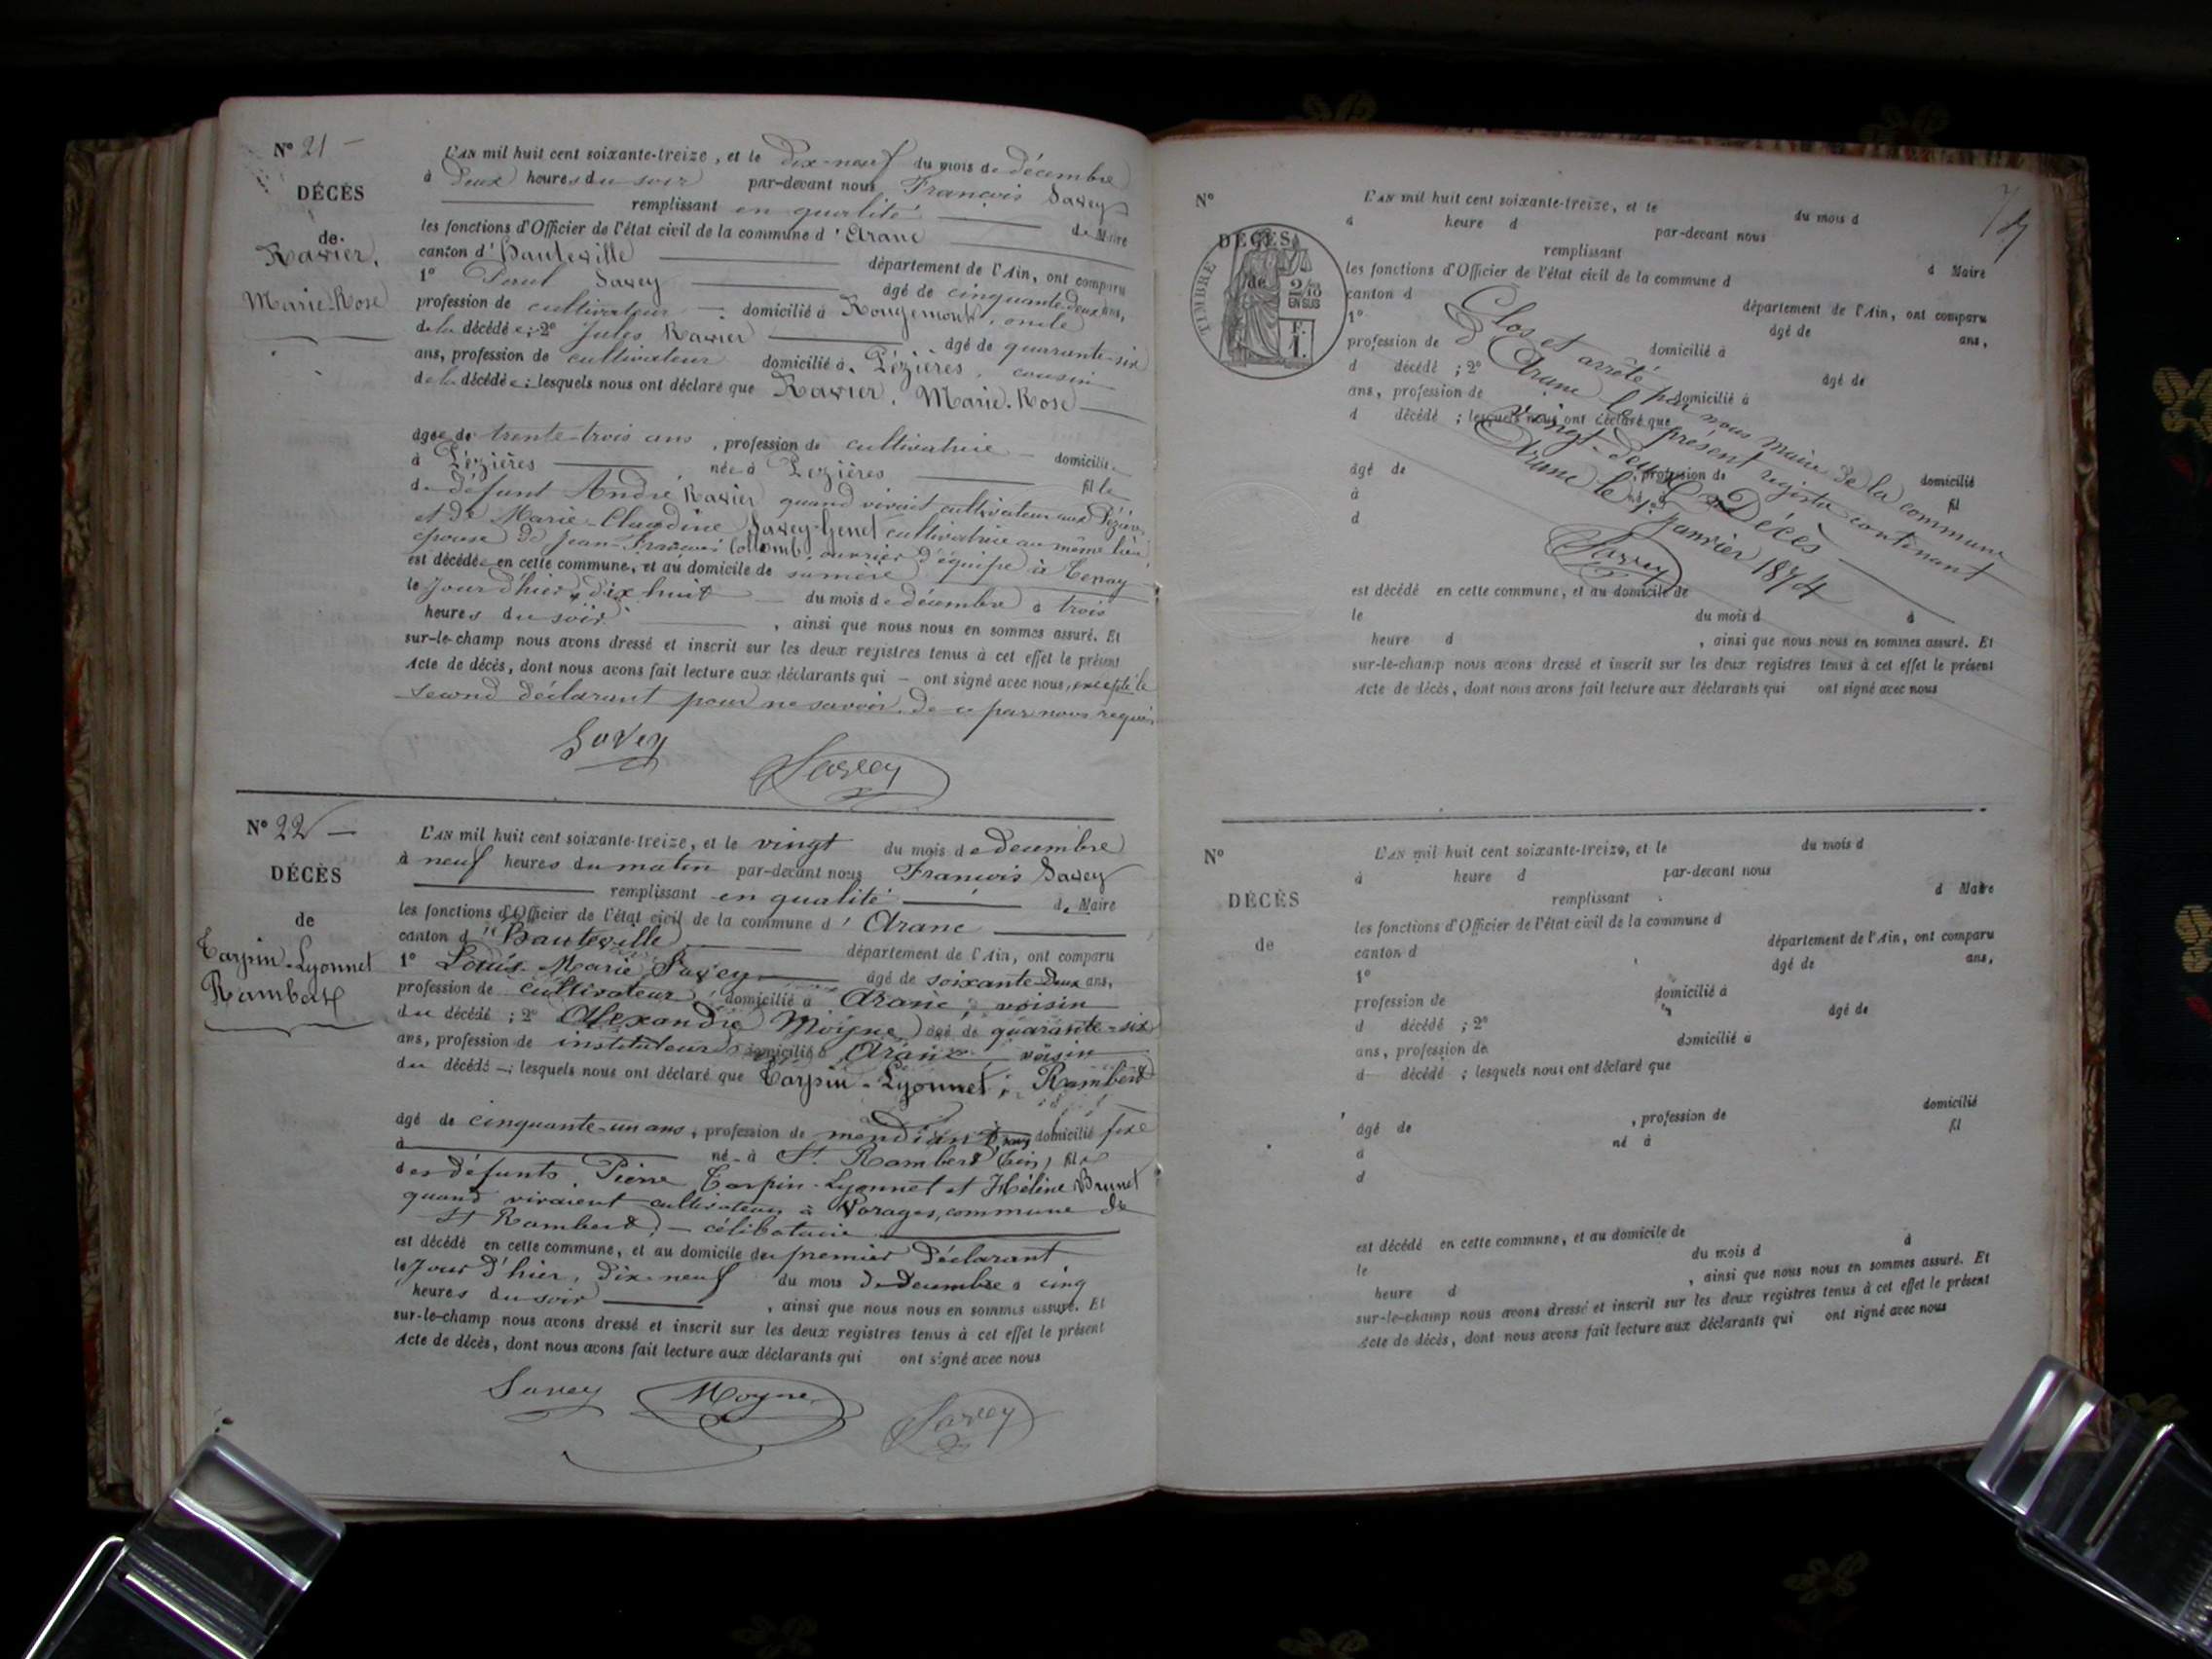 N° 21 —
DÉCÈS
de
Ravier,
Marie-Rose
L'AN mil huit cent soixante-treize, et le dix-neuf du mois de décembre
à deux heures du soir par-devant nous François Savey
remplissant en qualité de Maire
les fonctions d'Officier de l'état civil de la commune d'Aranc
canton d'Hauteville département de l'Ain, ont comparu
1° Paul Savey âgé de cinquante deux ans,
profession de cultivateur domicilié à Rougemont, oncle
de la décédée; 2° Jules Ravier âgé de quarante-six
ans, profession de cultivateur domicilié à Pézières, cousin
de la décédée; lesquels nous ont déclaré que Ravier, Marie-Rose
âgée de trente-trois ans, profession de cultivatrice domiciliée
à Pézières née à Pézières fille
de défunt André Ravier quand vivait cultivateur aux Pézières
et de Marie-Claudine Savey-Genel cultivatrice au même lieu
épouse de Jean-François Collomb, ouvrier d'équipe à Tenay
est décédée en cette commune, et au domicile de sa mère
le jour d'hier, dix huit du mois de décembre à trois
heures du soir, ainsi que nous nous en sommes assuré. Et
sur-le-champ nous avons dressé et inscrit sur les deux registres tenus à cet effet le présent
Acte de décès, dont nous avons fait lecture aux déclarants qui — ont signé avec nous, excepté le
second déclarant pour ne savoir, de ce par nous requis
Savey Savey
N° 22 —
DÉCÈS
de
Tarpin-Lyonnet
Rambert
L'AN mil huit cent soixante-treize, et le vingt du mois de décembre
à neuf heures du matin par-devant nous François Savey
remplissant en qualité de Maire
les fonctions d'Officier de l'état civil de la commune d'Aranc
canton d'Hauteville département de l'Ain, ont comparu
1° Louis-Marie Savey âgé de soixante-deux ans,
profession de cultivateur domicilié à Aranc, voisin
du décédé; 2° Alexandre Moyne âgé de quarante-six
ans, profession de instituteur domicilié à Aranc voisin
du décédé —; lesquels nous ont déclaré que Tarpin-Lyonnet, Rambert
âgé de cinquante-un ans, profession de mendiant sans domicilié fixe
à né à St Rambert (Ain) fils
des défunts Pierre Tarpin-Lyonnet et Hélène Brunet
quand vivaient cultivateurs à Vorages, commune de
St Rambert, — célibataire
est décédé en cette commune, et au domicile du premier déclarant
le jour d'hier, dix-neuf du mois de décembre à cinq
heures du soir, ainsi que nous nous en sommes assuré. Et
sur-le-champ nous avons dressé et inscrit sur les deux registres tenus à cet effet le présent
Acte de décès, dont nous avons fait lecture aux déclarants qui ont signé avec nous
Savey Moyne Savey
N°
DÉCÈS
de
TIMBRE
2/10
EN SUS
F.
1.
L'AN mil huit cent soixante-treize, et le du mois d
à heure d par-devant nous
remplissant d Maire
les fonctions d'Officier de l'état civil de la commune d
canton d département de l'Ain, ont comparu
1° âgé de ans,
profession de domicilié à
d décédé ; 2° âgé de
ans, profession de domicilié à
d décédé ; lesquels nous ont déclaré que
âgé de , profession de domicilié
à né à fil
d
Clos et arrêté par nous maire de la commune
d'Aranc le présent registre contenant
vingt-deux Décès
Aranc le 1er janvier 1874
Savey
est décédé en cette commune, et au domicile de
le du mois d à
heure d , ainsi que nous nous en sommes assuré. Et
sur-le-champ nous avons dressé et inscrit sur les deux registres tenus à cet effet le présent
Acte de décès, dont nous avons fait lecture aux déclarants qui ont signé avec nous
N°
DÉCÈS
de
L'AN mil huit cent soixante-treize, et le du mois d
à heure d par-devant nous
remplissant d Maire
les fonctions d'Officier de l'état civil de la commune d
canton d département de l'Ain, ont comparu
1° âgé de ans,
profession de domicilié à
d décédé ; 2° âgé de
ans, profession de domicilié à
d décédé ; lesquels nous ont déclaré que
âgé de , profession de domicilié
à né à fil
d
est décédé en cette commune, et au domicile de
le du mois d à
heure d , ainsi que nous nous en sommes assuré. Et
sur-le-champ nous avons dressé et inscrit sur les deux registres tenus à cet effet le présent
Acte de décès, dont nous avons fait lecture aux déclarants qui ont signé avec nous